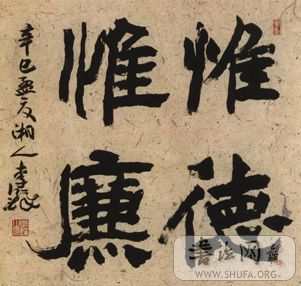 惟德
惟廉
辛巳孟夏湘人李鐸
書法网
WWW.SHUFA.ORG